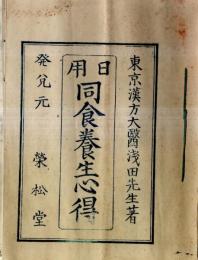 東京漢方大醫淺田先生著
日用
同食養生心得
発兌元 榮松堂